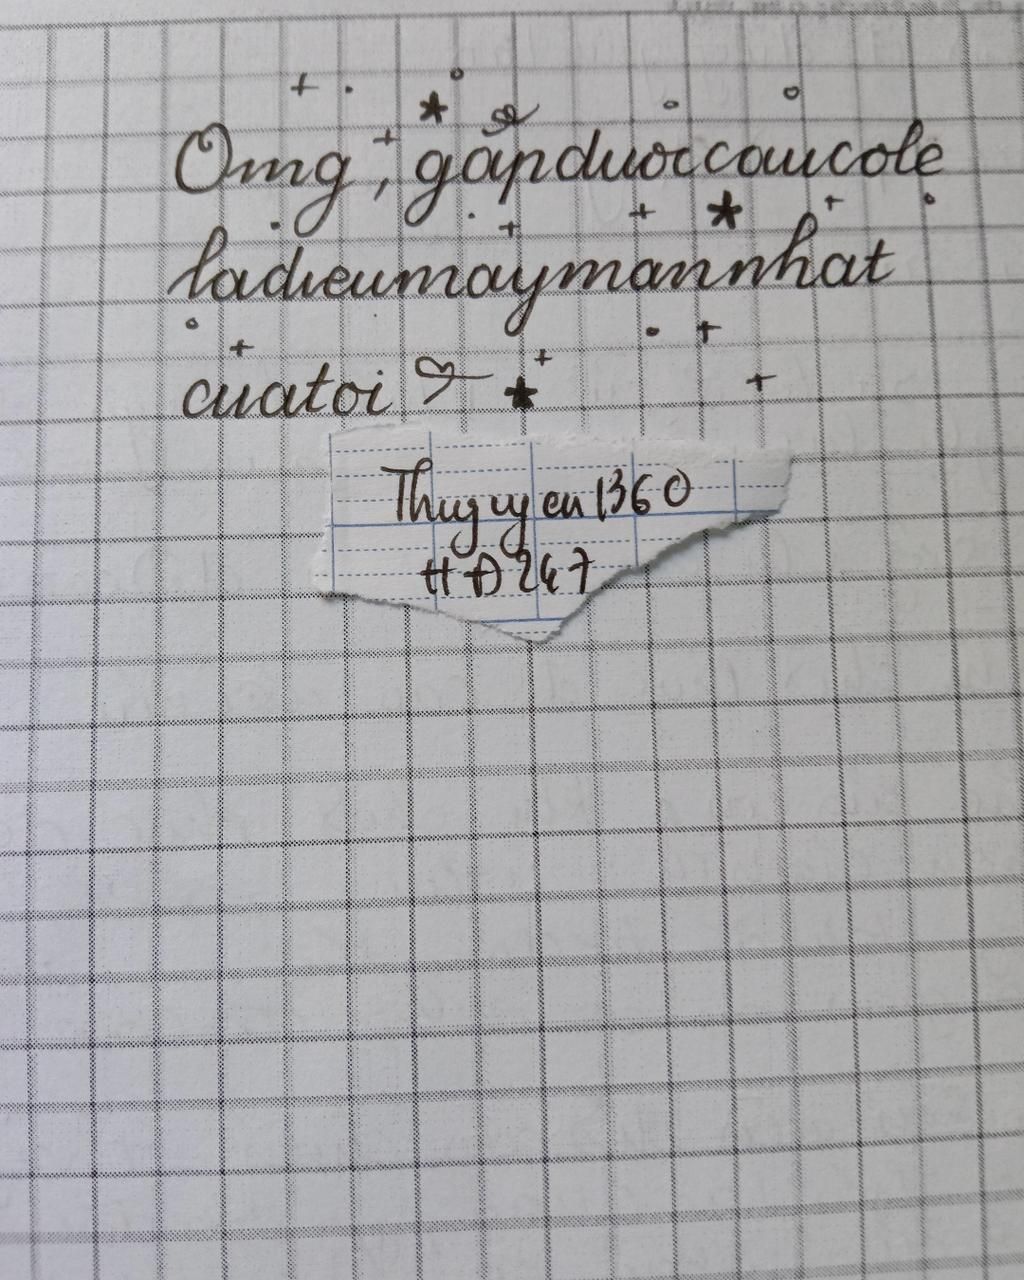 Omg, gapduoccaucole
ladieumaymannhat
cuatoi
Thuy uyen 1360
HĐ 247